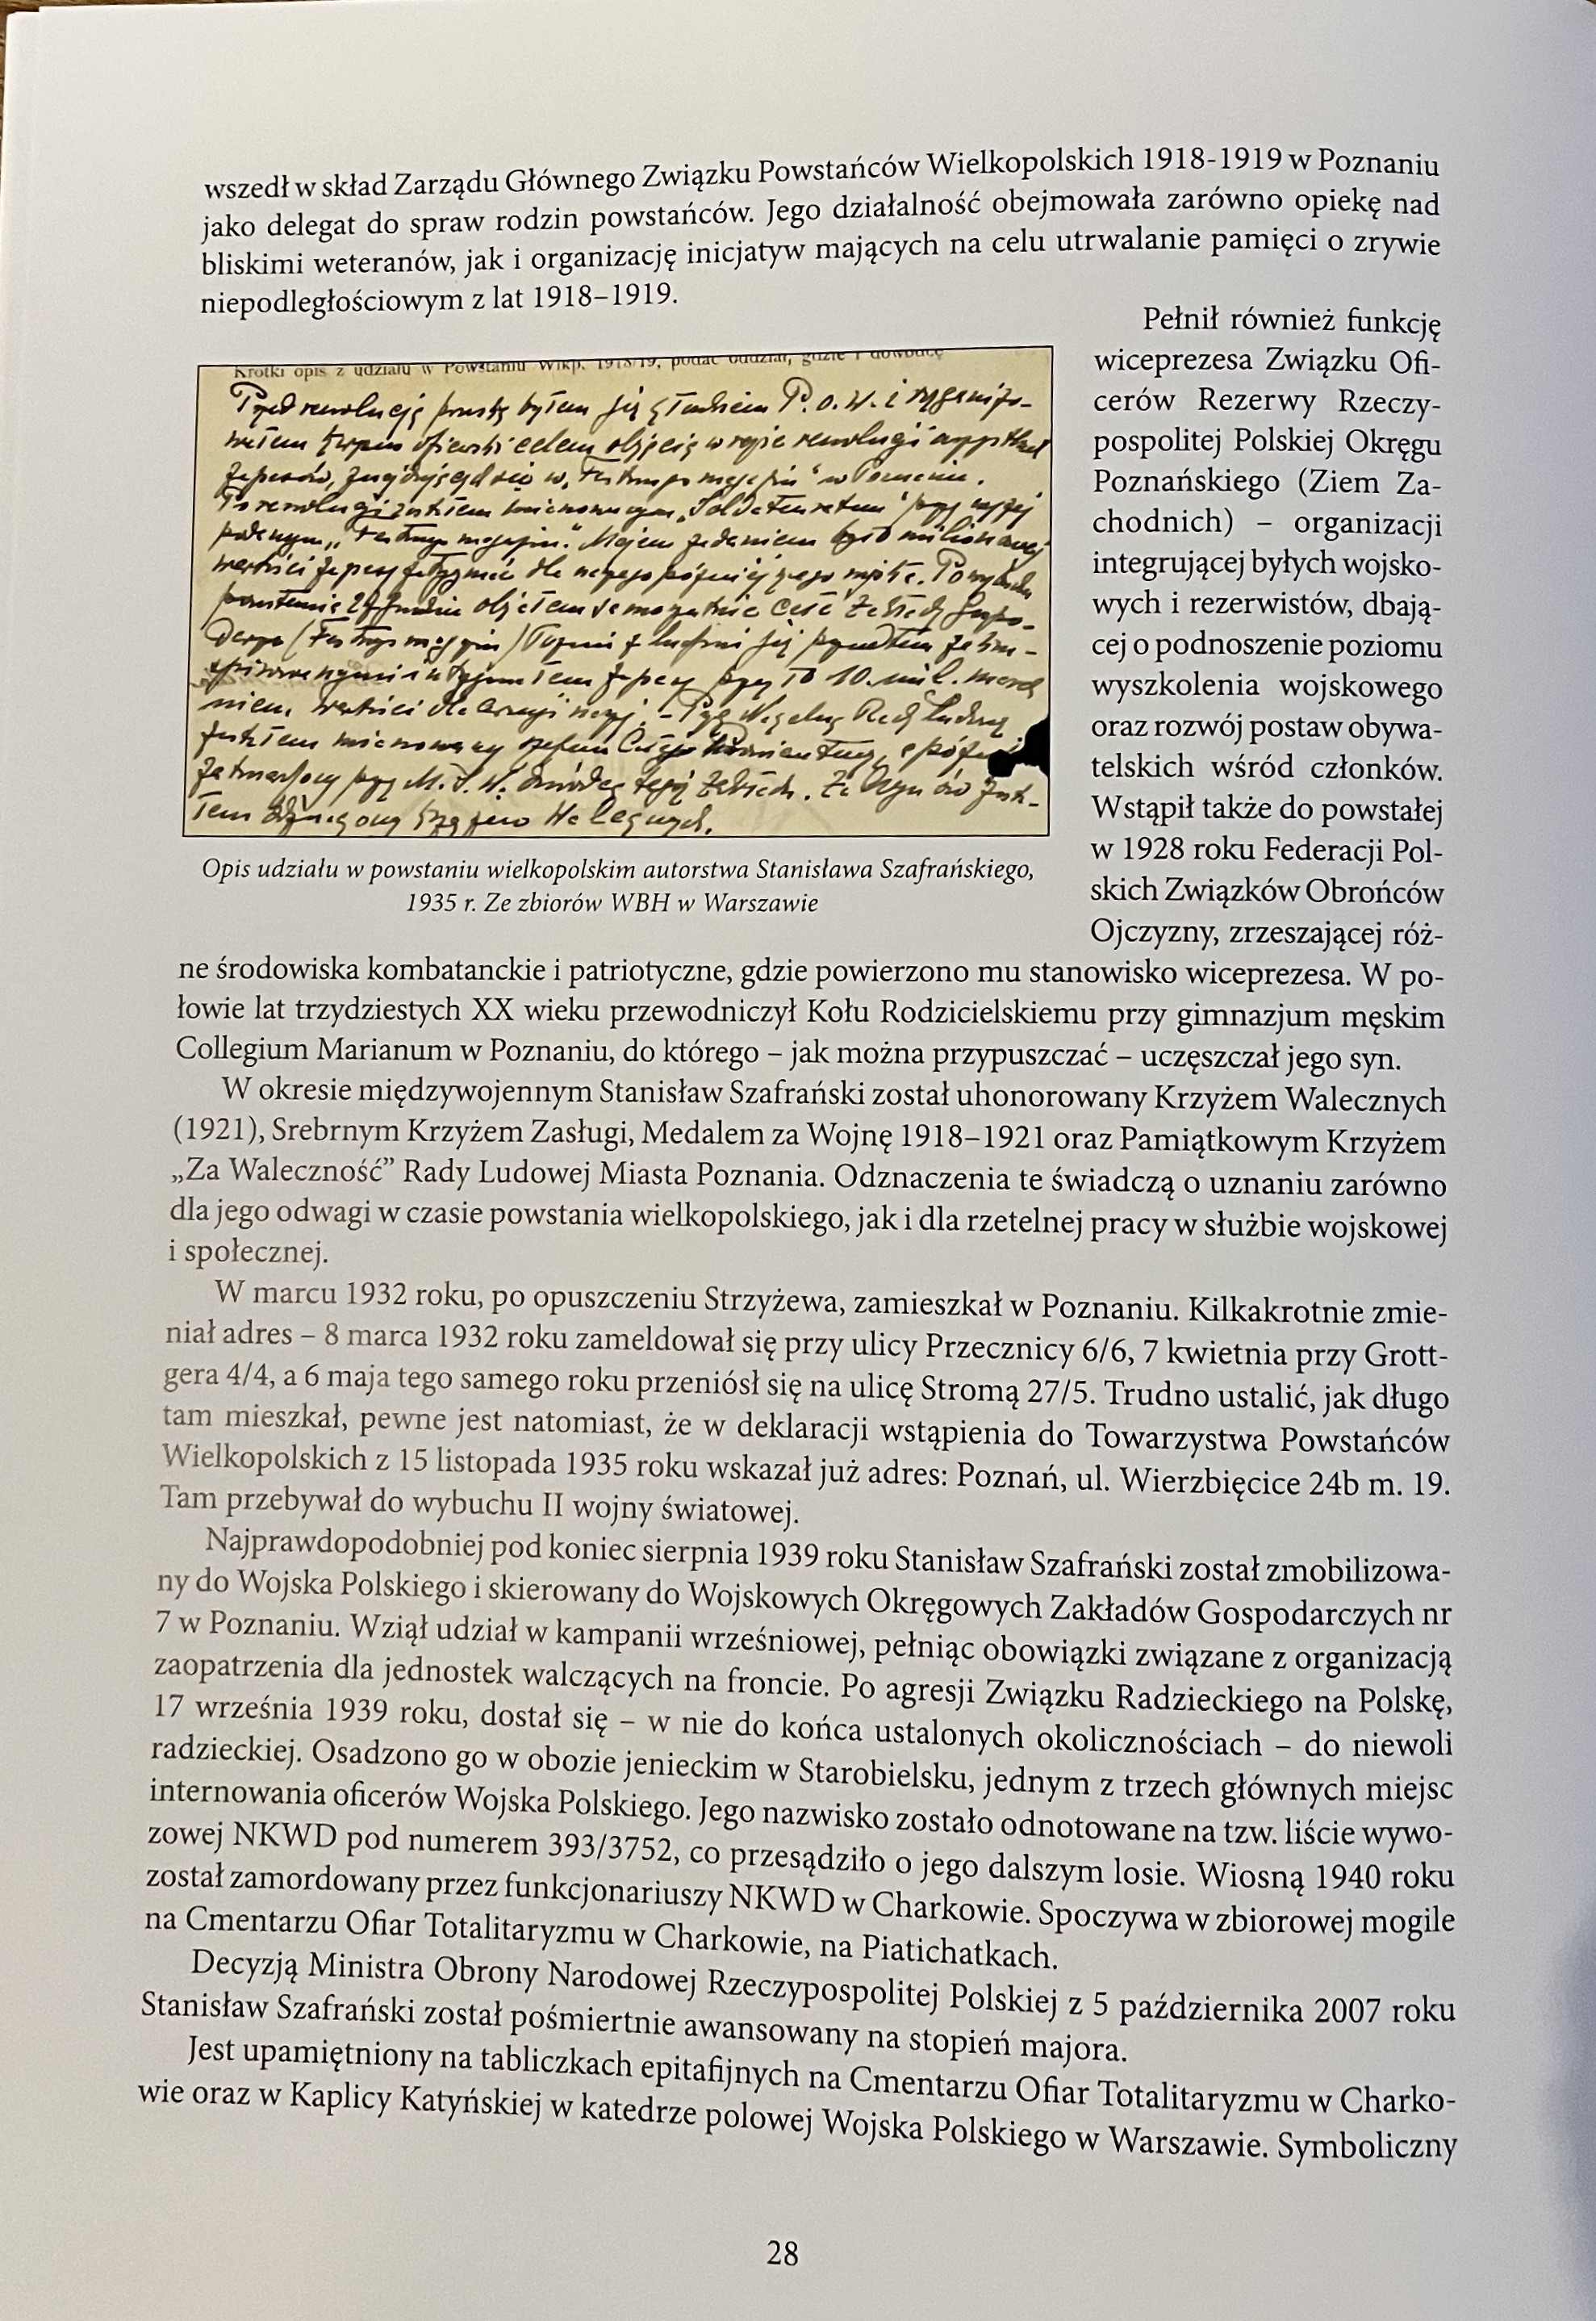 wszedł w skład Zarządu Głównego Związku Powstańców Wielkopolskich 1918-1919 w Poznaniu
jako delegat do spraw rodzin powstańców. Jego działalność obejmowała zarówno opiekę nad
bliskimi weteranów, jak i organizację inicjatyw mających na celu utrwalanie pamięci o zrywie
niepodległościowym z lat 1918–1919.
Krótki opis z udziału w Powstaniu Wlkp. 1918/19, podać oddział, gdzie i dowódcę
Przed rewolucją pruską byłem już członkiem P.O.W. i zorganizo-
wałem
celem objęcia w razie rewolucji
zapasów, znajdujących się w
Po rewolucji zostałem mianowanym
przy wyżej
Mojem zadaniem było milionowej
wartości zapasy zatrzymać dla naszego późniejszego wojska. Po wybuchu
powstania 27 Grudnia objąłem samodzielnie cały Zakład Gospo-
darczy
z ludźmi już przedtem
zapasy przy to 10. mil. marek
niem. wartości dla armji naszej. - Przez Naczelną Radę Ludową
zostałem mianowany szefem całego
a później
zatwierdzony przez M.S.W. dowódcą tegoż Zakładu. Za czyn ów zosta-
łem odznaczony Krzyżem Walecznych.
Opis udziału w powstaniu wielkopolskim autorstwa Stanisława Szafrańskiego,
1935 r. Ze zbiorów WBH w Warszawie
Pełnił również funkcję
wiceprezesa Związku Ofi-
cerów Rezerwy Rzeczy-
pospolitej Polskiej Okręgu
Poznańskiego (Ziem Za-
chodnich) – organizacji
integrującej byłych wojsko-
wych i rezerwistów, dbają-
cej o podnoszenie poziomu
wyszkolenia wojskowego
oraz rozwój postaw obywa-
telskich wśród członków.
Wstąpił także do powstałej
w 1928 roku Federacji Pol-
skich Związków Obrońców
Ojczyzny, zrzeszającej róż-
ne środowiska kombatanckie i patriotyczne, gdzie powierzono mu stanowisko wiceprezesa. W po-
łowie lat trzydziestych XX wieku przewodniczył Kołu Rodzicielskiemu przy gimnazjum męskim
Collegium Marianum w Poznaniu, do którego – jak można przypuszczać – uczęszczał jego syn.
W okresie międzywojennym Stanisław Szafrański został uhonorowany Krzyżem Walecznych
(1921), Srebrnym Krzyżem Zasługi, Medalem za Wojnę 1918–1921 oraz Pamiątkowym Krzyżem
„Za Waleczność” Rady Ludowej Miasta Poznania. Odznaczenia te świadczą o uznaniu zarówno
dla jego odwagi w czasie powstania wielkopolskiego, jak i dla rzetelnej pracy w służbie wojskowej
i społecznej.
W marcu 1932 roku, po opuszczeniu Strzyżewa, zamieszkał w Poznaniu. Kilkakrotnie zmie-
niał adres – 8 marca 1932 roku zameldował się przy ulicy Przecznicy 6/6, 7 kwietnia przy Grott-
gera 4/4, a 6 maja tego samego roku przeniósł się na ulicę Stromą 27/5. Trudno ustalić, jak długo
tam mieszkał, pewne jest natomiast, że w deklaracji wstąpienia do Towarzystwa Powstańców
Wielkopolskich z 15 listopada 1935 roku wskazał już adres: Poznań, ul. Wierzbięcice 24b m. 19.
Tam przebywał do wybuchu II wojny światowej.
Najprawdopodobniej pod koniec sierpnia 1939 roku Stanisław Szafrański został zmobilizowa-
ny do Wojska Polskiego i skierowany do Wojskowych Okręgowych Zakładów Gospodarczych nr
7 w Poznaniu. Wziął udział w kampanii wrześniowej, pełniąc obowiązki związane z organizacją
zaopatrzenia dla jednostek walczących na froncie. Po agresji Związku Radzieckiego na Polskę,
17 września 1939 roku, dostał się – w nie do końca ustalonych okolicznościach – do niewoli
radzieckiej. Osadzono go w obozie jenieckim w Starobielsku, jednym z trzech głównych miejsc
internowania oficerów Wojska Polskiego. Jego nazwisko zostało odnotowane na tzw. liście wywo-
zowej NKWD pod numerem 393/3752, co przesądziło o jego dalszym losie. Wiosną 1940 roku
został zamordowany przez funkcjonariuszy NKWD w Charkowie. Spoczywa w zbiorowej mogile
na Cmentarzu Ofiar Totalitaryzmu w Charkowie, na Piatichatkach.
Decyzją Ministra Obrony Narodowej Rzeczypospolitej Polskiej z 5 października 2007 roku
Stanisław Szafrański został pośmiertnie awansowany na stopień majora.
Jest upamiętniony na tabliczkach epitafijnych na Cmentarzu Ofiar Totalitaryzmu w Charko-
wie oraz w Kaplicy Katyńskiej w katedrze polowej Wojska Polskiego w Warszawie. Symboliczny
28